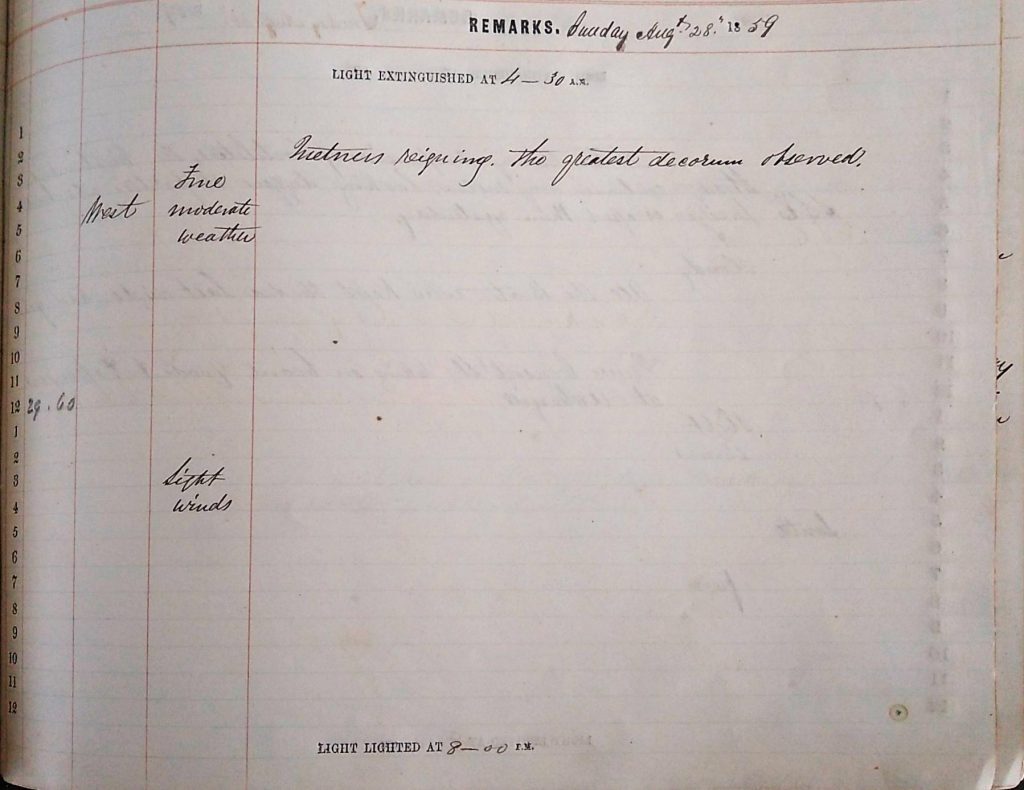 REMARKS. Sunday Augt 28th 1859
LIGHT EXTINGUISHED AT 4 — 30 A.M.
1
2
reigning. The greatest decorum observed.
3
Fine
4
West
moderate
5
weather
6
7
8
9
10
11
12 29.60
1
2
3
Light
4
winds
5
6
7
8
9
10
11
12
LIGHT LIGHTED AT 8 — 00 P.M.